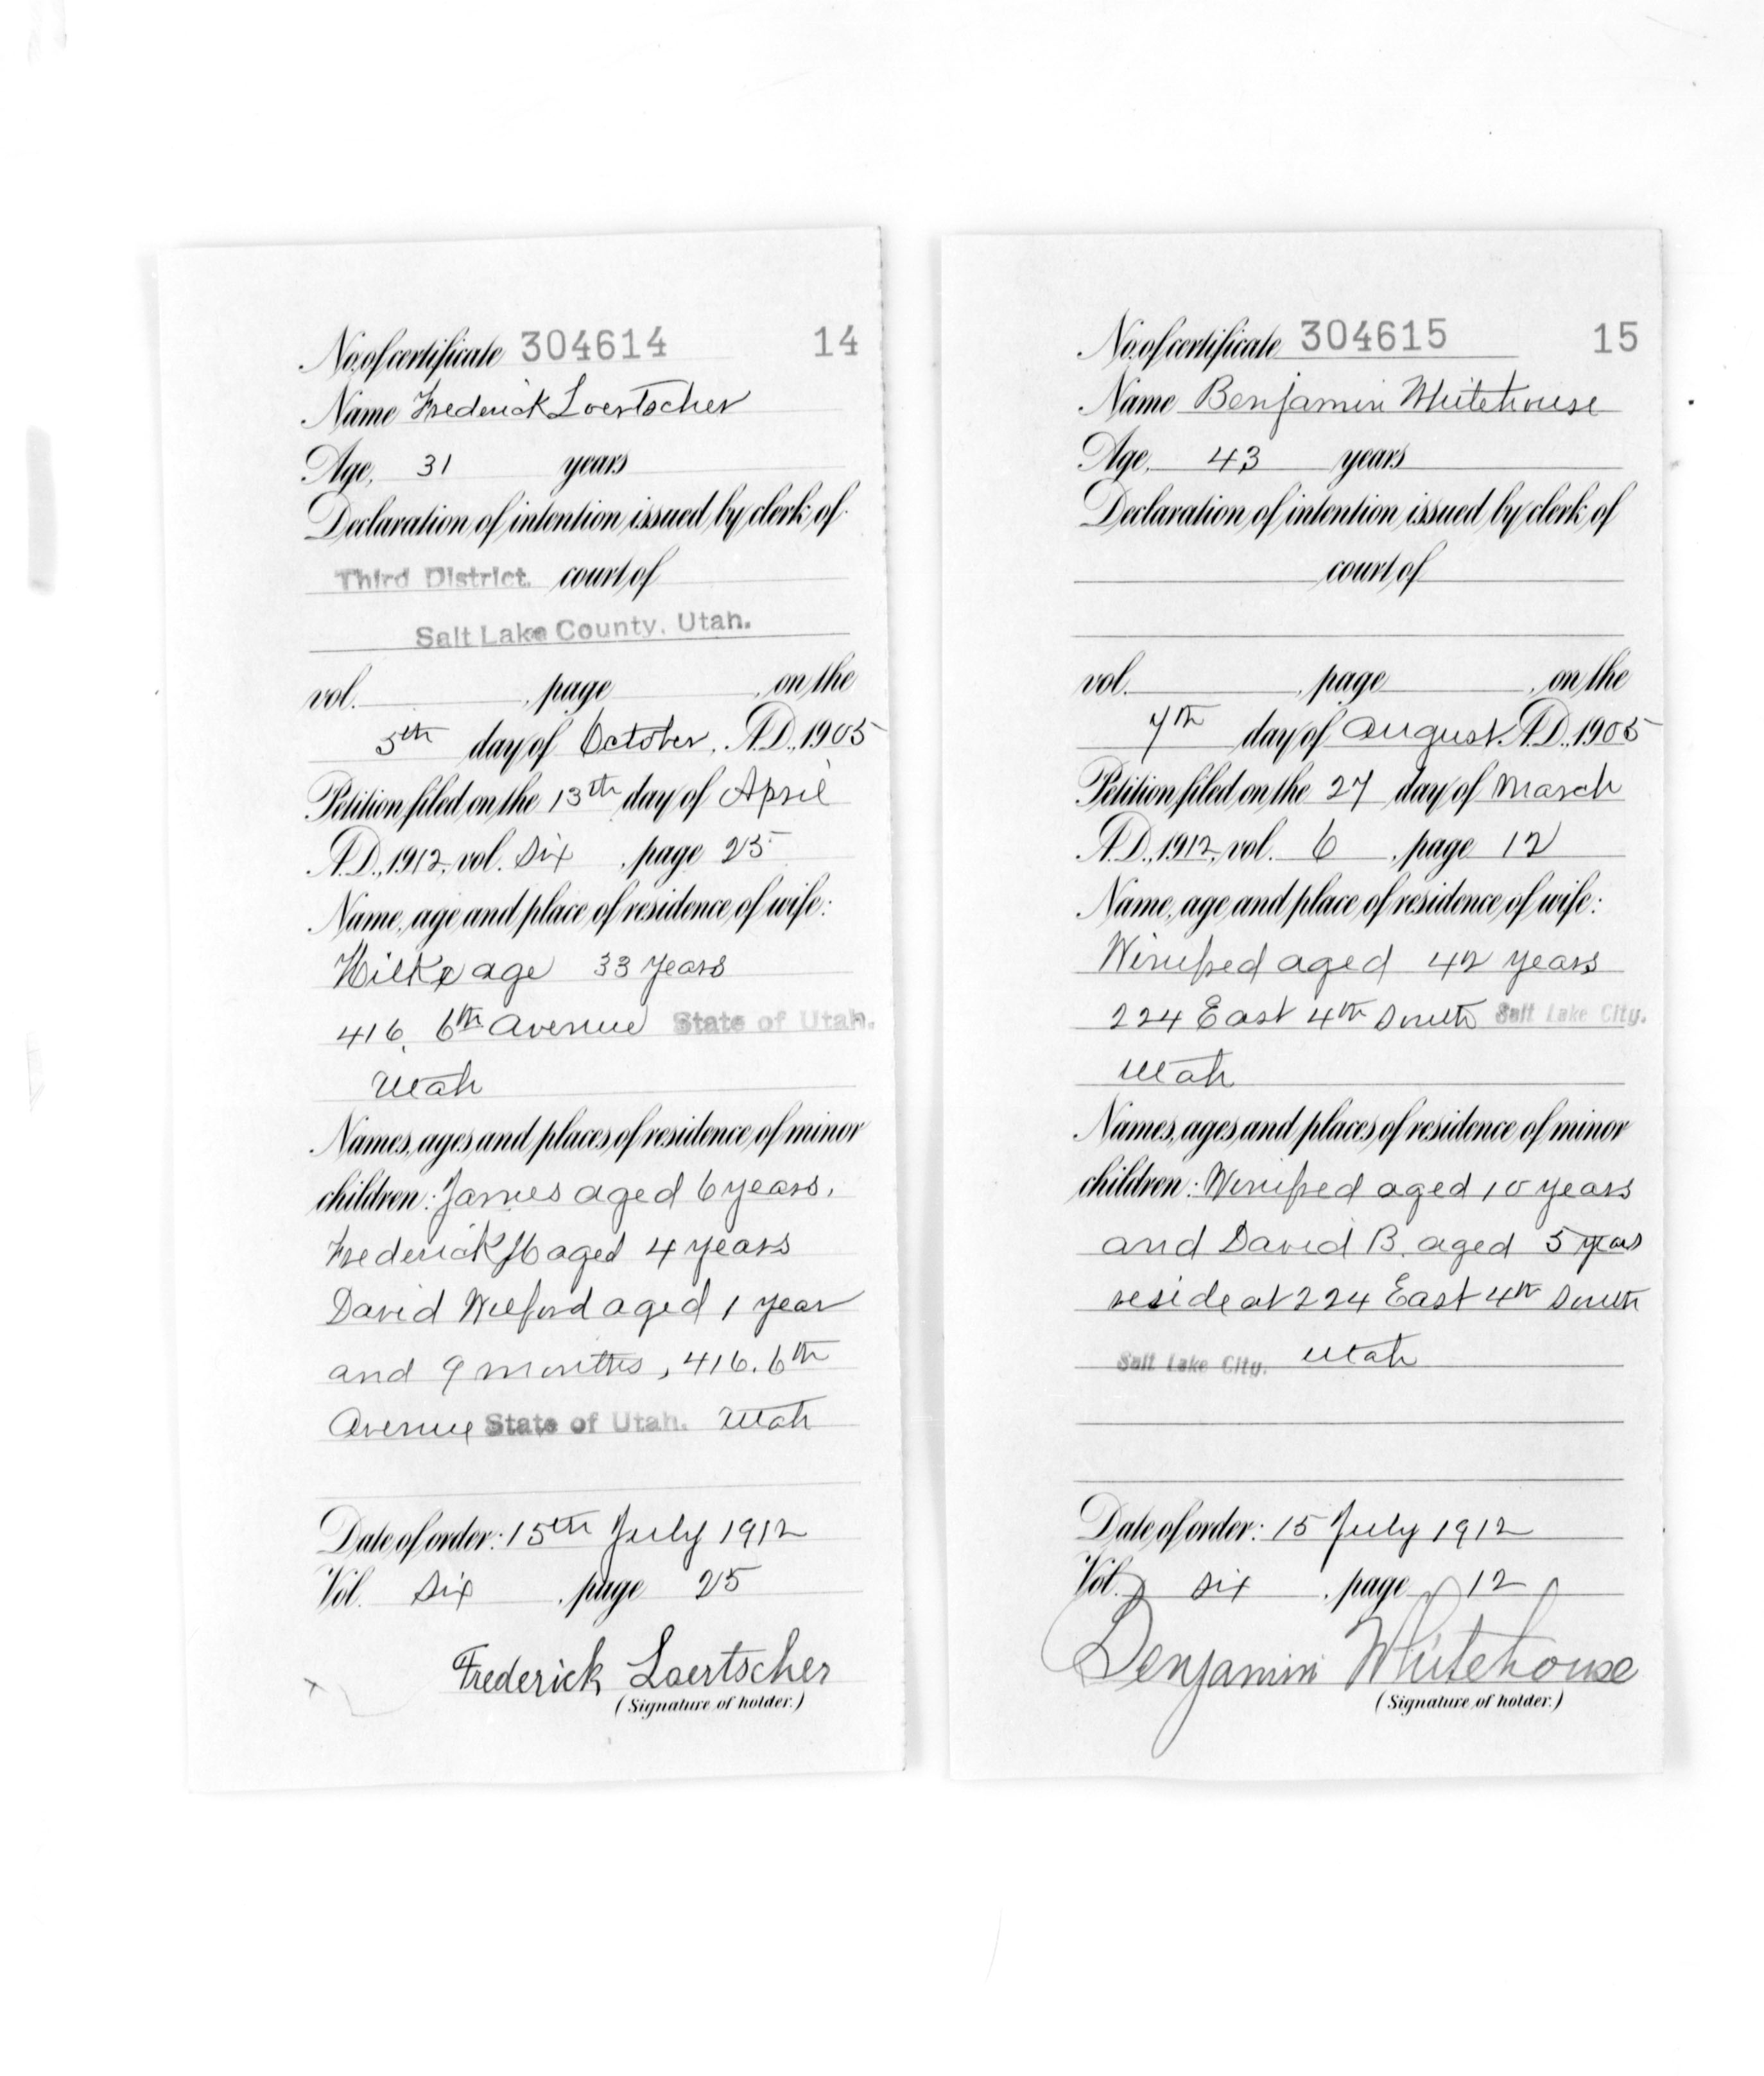 No. of certificate 304614 14
Name Frederick Loertscher
Age, 31 years
Declaration of intention issued by clerk of
Third District. court of
Salt Lake County, Utah.
vol. , page , on the
5th day of October, A.D., 1905
Petition filed on the 13th day of April
A.D., 1912, vol. Six , page 25
Name, age and place of residence of wife:
age 33 years
416, 6th Avenue State of Utah.
Utah
Names, ages and places of residence of minor
children: James aged 6 years,
Frederick H aged 4 years
David Wilford aged 1 year
and 9 months, 416. 6th
Avenue State of Utah. Utah
Date of order: 15th July 1912
Vol. Six , page 25
Frederick Loertscher
(Signature of holder.)
No. of certificate 304615 15
Name Benjamin Whitehouse
Age, 43 years
Declaration of intention issued by clerk of
court of
vol. , page , on the
7th day of August A.D., 1905
Petition filed on the 27 day of March
A.D., 1912, vol. 6 , page 12
Name, age and place of residence of wife:
Winifred aged 42 years
224 East 4th South Salt Lake City.
Utah
Names, ages and places of residence of minor
children: Winifred aged 10 years
and David B. aged 5 years
reside at 224 East 4th South
Salt Lake City. Utah
Date of order: 15 July 1912
Vol. six , page 12
Benjamin Whitehouse
(Signature of holder.)